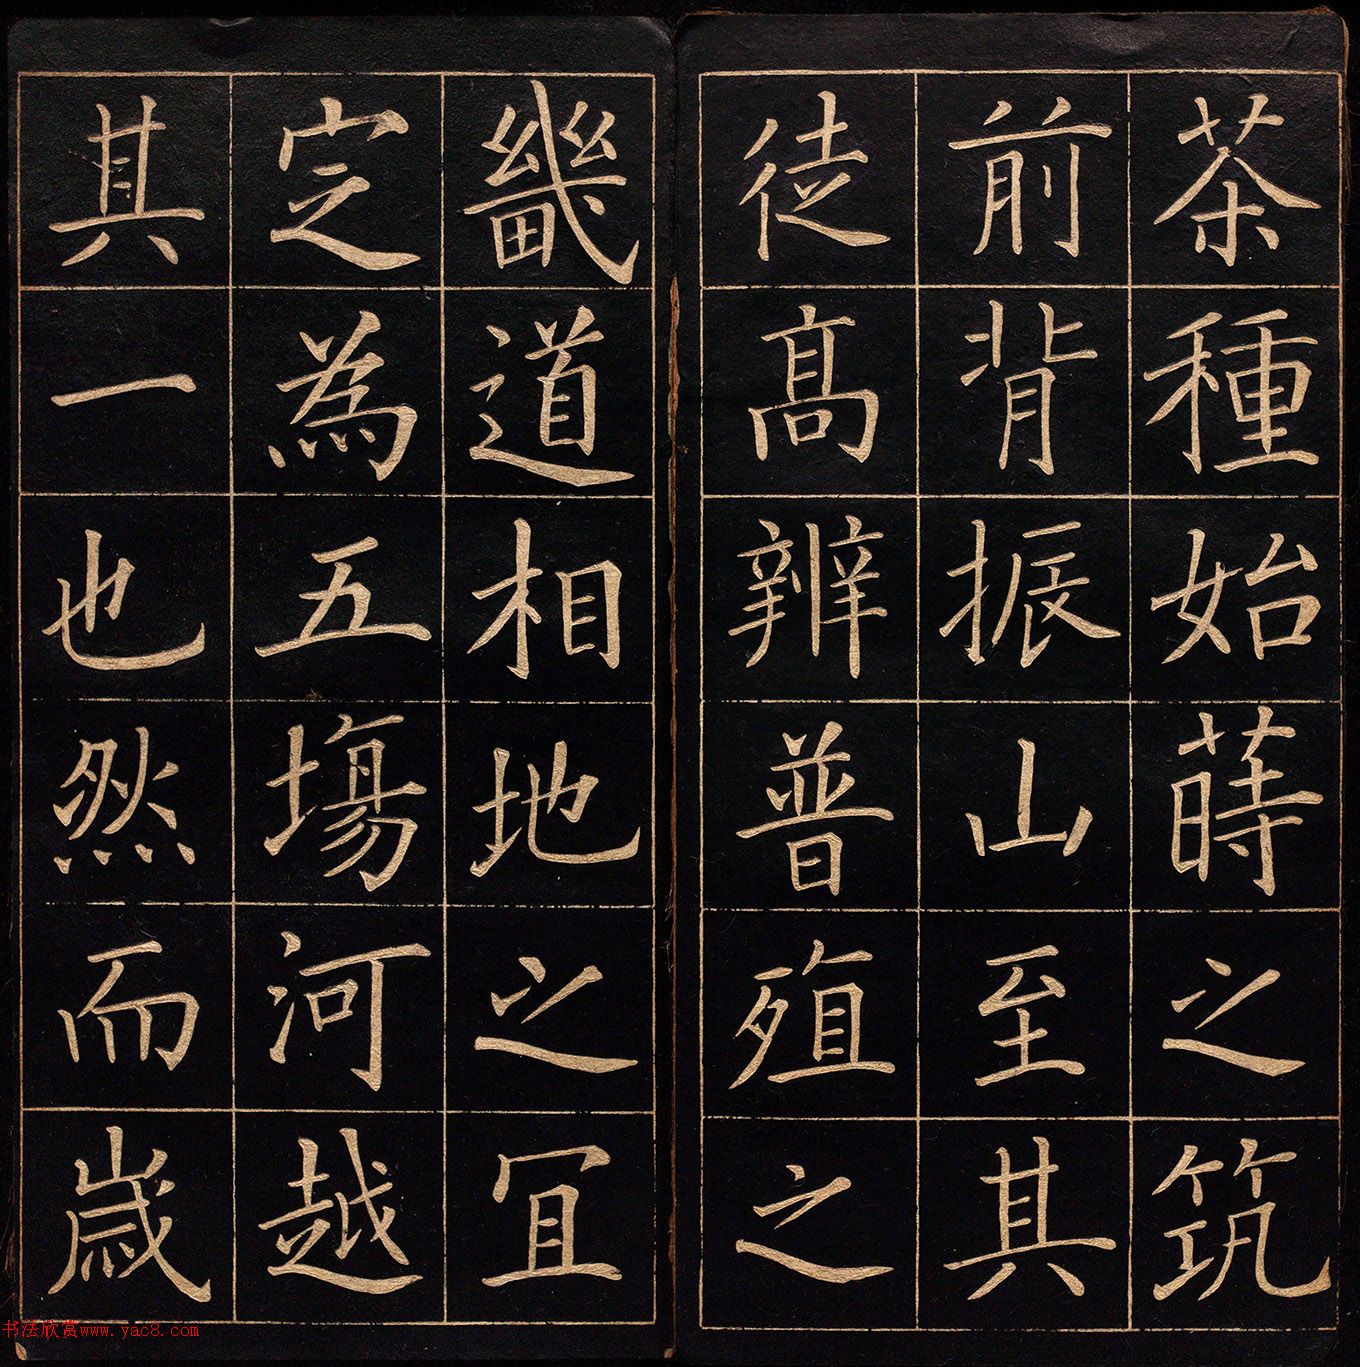 茶種始蒔之筑
前背振山至其
徒髙辨普殖之
畿道相地之冝
㝎為五塲河越
其一也然而嵗
书法欣赏www.yac8.com